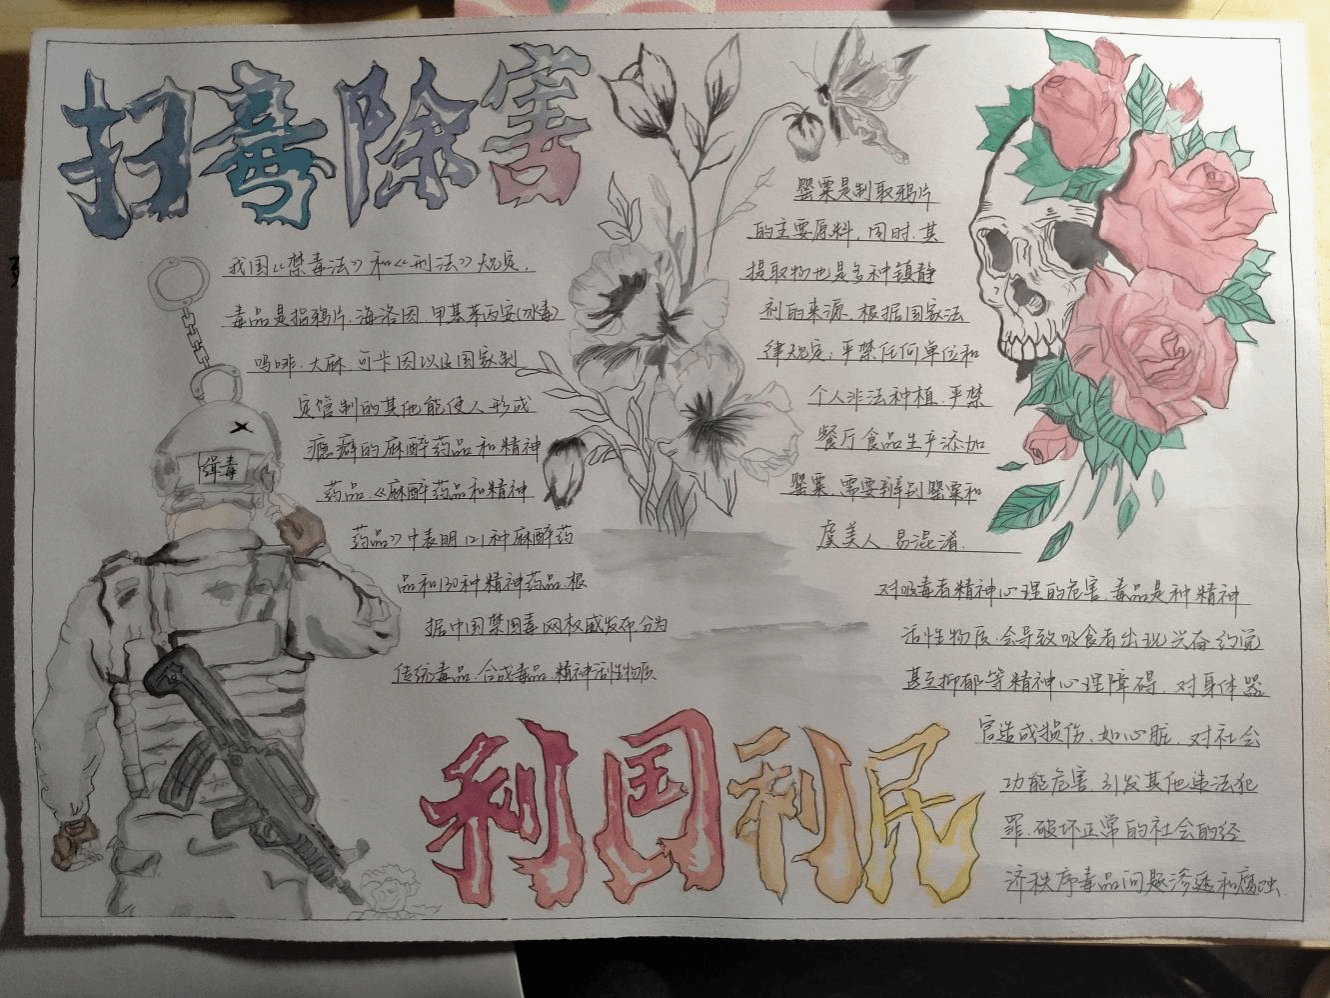 扫毒除害
我国《禁毒法》和《刑法》规定，
毒品是指鸦片、海洛因、甲基苯丙安(冰毒)
吗啡、大麻、可卡因以及国家制
定管制的其他能使人形成
瘾癖的麻醉药品和精神
药品。《麻醉药品和精神
药品》中表明121种麻醉药
品和130种精神药品.根
据中国禁国毒网权威发布分为
传统毒品.合成毒品.精神活性物质
缉毒
罂粟是制取鸦片
的主要原料，同时.其
提取物也是多种镇静
剂的来源.根据国家法
律规定：严禁任何单位和
个人非法种植.严禁
餐厅食品生产添加
罂粟，需要辨别罂粟和
虞美人.易混淆.
对吸毒者精神心理的危害.毒品是种精神
活性物质.会导致吸食者出现兴奋
甚至抑郁等精神心理障碍，对身体器
官造成损伤、如心脏，对社会
功能危害.引发其他违法犯
罪.破坏正常的社会的经
济秩序毒品问题渗透和腐蚀.
利国利民